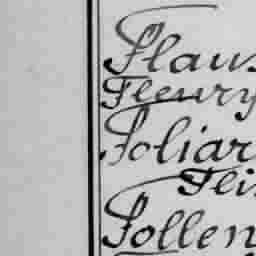 Flaus
Fleury
Foliar
Flei
Follen